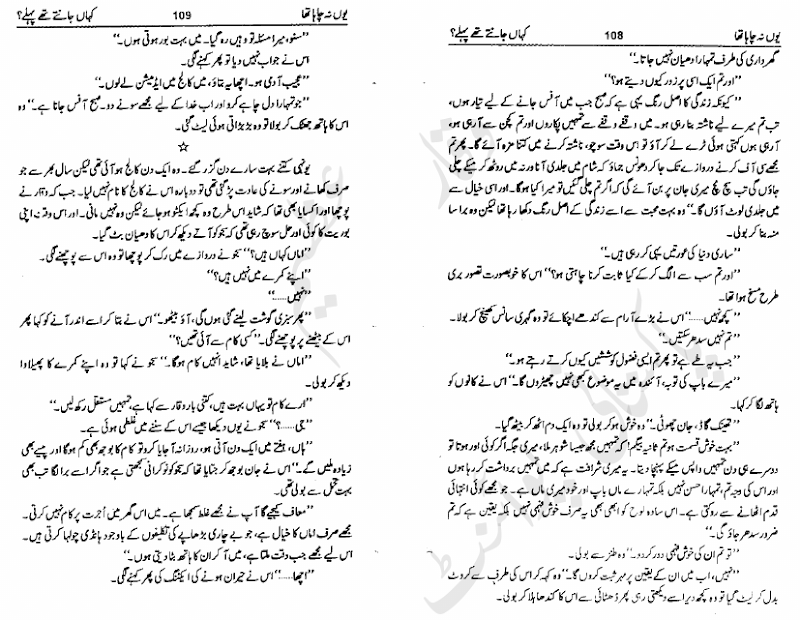 یوں نہ چاہا تھا 108 کہاں جانتے تھے پہلے؟
گھرداری کی طرف تمہارا دھیان نہیں جاتا۔"
"اور تم ایک اسی پر زور کیوں دیتے ہو؟"
"کیونکہ زندگی کا اصل رنگ یہی ہے کہ صبح جب میں آفس جانے کے لیے تیار ہوں،
تب تم میرے لیے ناشتہ بنا رہی ہو۔ میں وقفے وقفے سے تمہیں پکاروں اور تم کچن سے آ رہی ہو،
آ رہی ہوں کہتی ہوئی ٹرے لے کر آؤ تو اس وقت سوچو، ناشتہ کرنے میں کتنا مزہ آئے گا۔ پھر تم
مجھے سی آف کرنے دروازے تک جا کر دھونس جماؤ کہ شام میں جلدی آنا ورنہ میں روٹھ کر میکے چلی
جاؤں گی تب سچ مچ میری جان پر بن آئے گی کہ اگر تم چلی گئیں تو میرا کیا ہوگا۔ اور اسی خیال سے
میں جلدی لوٹ آؤں گا۔" وہ بہت محبت سے اسے زندگی کے اصل رنگ دکھا رہا تھا لیکن وہ برا سا
منہ بنا کر بولی۔
"ساری دنیا کی عورتیں یہی کر رہی ہیں۔"
"اور تم سب سے الگ کر کے کیا ثابت کرنا چاہتی ہو؟" اس کا خوبصورت تصور بری
طرح مسخ ہوا تھا۔
"کچھ نہیں......" اس نے بڑے آرام سے کندھے اچکائے تو وہ گہری سانس کھینچ کر بولا۔
"تم نہیں سدھر سکتیں۔"
"جب یہ طے ہے تو پھر تم ایسی فضول کوششیں کیوں کرتے رہتے ہو۔"
"میرے باپ کی توبہ، آئندہ میں یہ موضوع کبھی نہیں چھیڑوں گا۔" اس نے کانوں کو
ہاتھ لگا کر کہا۔
"تھینک گاڈ، جان چھوٹی۔" وہ خوش ہو کر بولی تو وہ ایک دم اٹھ کر بیٹھ گیا۔
"بہت خوش قسمت ہو تم ثانیہ بیگم! کہ تمہیں مجھ جیسا شوہر ملا، میری جگہ اگر کوئی اور ہوتا تو
دوسرے ہی دن تمہیں واپس میکے پہنچا دیتا۔ یہ میری شرافت ہے کہ میں تمہیں برداشت کر رہا ہوں
اور اس کی وجہ تم، تمہارا حسن نہیں بلکہ تمہارے ماں باپ اور خود میری ماں ہے۔ جو مجھے کوئی انتہائی
قدم اٹھانے سے روکتی ہے۔ اس سادہ لوح کو ابھی بھی یہ صرف خوش فہمی نہیں بلکہ یقین ہے کہ تم
ضرور سدھر جاؤ گی۔"
"تو تم ان کی خوش فہمی دور کر دو۔" وہ طنز سے بولی۔
"نہیں، اب میں ان کے یقین پر مہر ثبت کروں گا۔" وہ کہہ کر اس کی طرف سے کروٹ
بدل کر لیٹ گیا تو وہ کچھ دیر اسے دیکھتی رہی پھر ڈھٹائی سے اس کا کندھا ہلا کر بولی۔
یوں نہ چاہا تھا 109 کہاں جانتے تھے پہلے؟
"سنو، میرا مسئلہ تو وہیں رہ گیا۔ میں بہت بور ہوتی ہوں۔"
اس نے جواب نہیں دیا تو پھر کہنے لگی۔
"عجیب آدمی ہو۔ اچھا یہ بتاؤ، میں کالج میں ایڈمیشن لے لوں۔"
"جو تمہارا دل چاہے کرو اور اب خدا کے لیے مجھے سونے دو۔ صبح آفس جانا ہے۔" وہ
اس کا ہاتھ جھٹک کر بولا تو وہ بڑبڑاتی ہوئی لیٹ گئی۔
☆
یونہی کتنے بہت سارے دن گزر گئے۔ وہ ایک دن کالج ہو آئی تھی لیکن سال بھر سے جو
صرف کھانے اور سونے کی عادت پڑ گئی تھی تو دوبارہ اس نے کالج کا نام نہیں لیا۔ جب کہ وقار نے
پوچھا اور اکسایا بھی تھا کہ شاید اس طرح وہ کچھ ایکٹو ہو جائے لیکن وہ نہیں مانی۔ اور اس وقت اپنی
بوریت کا کوئی اور حل سوچ رہی تھی کہ نجو کو آتے دیکھ کر اس کا دھیان بٹ گیا۔
"اماں کہاں ہیں؟" نجو نے دروازے میں رک کر پوچھا تو وہ اس سے پوچھنے لگی۔
"اپنے کمرے میں نہیں ہیں؟"
"نہیں......"
"پھر سبزی گوشت لینے گئی ہوں گی، آؤ بیٹھو۔" اس نے بتا کر اسے اندر آنے کو کہا پھر
اس کے بیٹھنے پر پوچھنے لگی۔ "کسی کام سے آئی تھیں؟"
"اماں نے بلایا تھا، شاید انہیں کام ہوگا۔" نجو نے کہا تو وہ اپنے کمرے کا پھیلاوا
دیکھ کر بولی۔
"ارے کام تو یہاں بہت ہیں، کتنی بار وقار سے کہا ہے، تمہیں مستقل رکھ لیں۔"
"جی......؟" نجو نے یوں دیکھا جیسے اس کے سننے میں غلطی ہوئی ہے۔
"ہاں، ہفتے میں ایک دن آتی ہو، روزانہ آ جایا کرو تو کام کا بوجھ بھی کم ہوگا اور پیسے بھی
زیادہ ملیں گے۔" اس نے جان بوجھ کر جتایا تھا کہ نجو کو نوکرانی سمجھتی ہے جو اگر اسے برا لگا تب بھی
بہت تحمل سے بولی تھی۔
"معاف کیجیے گا آپ نے مجھے غلط سمجھا ہے۔ میں اس گھر میں اُجرت پر کام نہیں کرتی۔
مجھے صرف اماں کا خیال ہے، جو بے چاری بڑھاپے کی تکلیفوں کے باوجود ہانڈی چولہا کرتی ہیں۔
اس لیے مجھے جب وقت ملتا ہے، میں آ کر ان کا ہاتھ بٹا دیتی ہوں۔"
"اچھا......" اس نے حیران ہونے کی ایکٹنگ کی پھر کہنے لگی۔